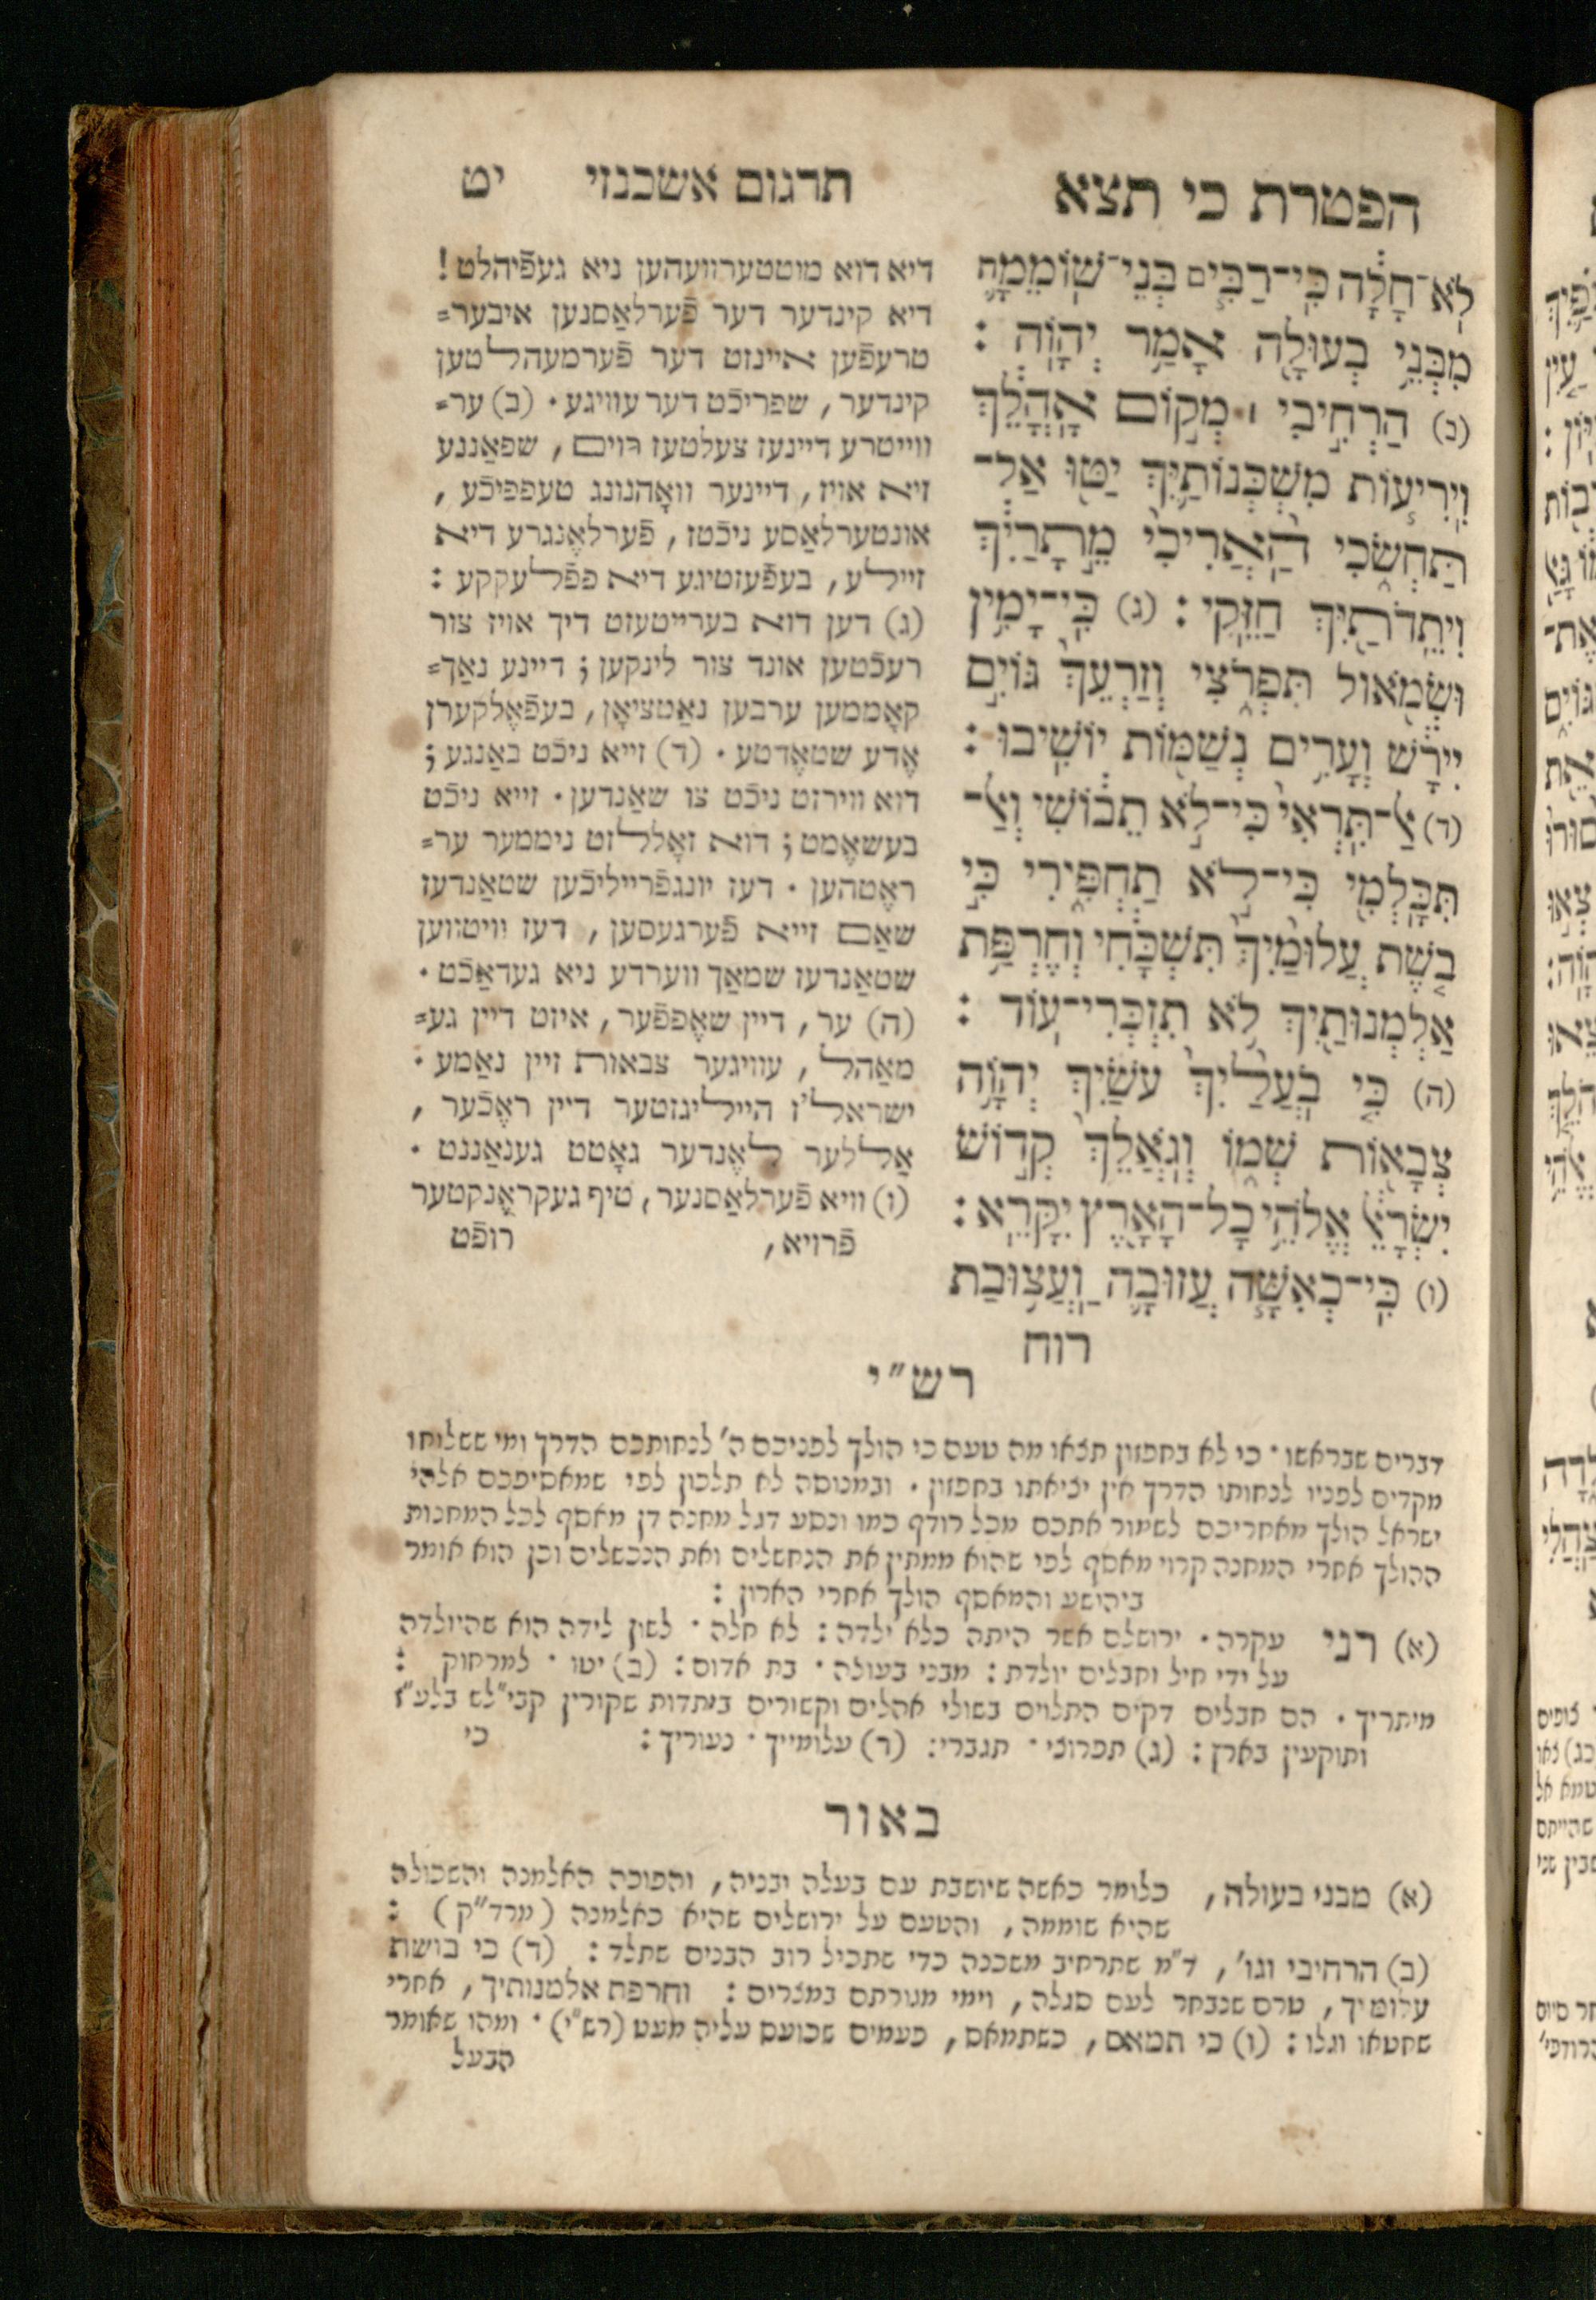 הפטרת כי תצא
תרגום אשכנזי יט
לֹא־חָלָה כִּי־רַבִּים בְּנֵי־שׁוֹמֵמָה
מִבְּנֵי בְעוּלָה אָמַר יְהוָה :
(ב) הַרְחִיבִי ׀ מְקוֹם אָהֳלֵךְ
וִירִיעוֹת מִשְׁכְּנוֹתַיִךְ יַטּוּ אַל־
תַּחְשֹׂכִי הַאֲרִיכִי מֵיתָרַיִךְ
וִיתֵדֹתַיִךְ חַזֵּקִי : (ג) כִּי־יָמִין
וּשְׂמֹאול תִּפְרֹצִי וְזַרְעֵךְ גּוֹיִם
יִירָשׁ וְעָרִים נְשַׁמּוֹת יוֹשִׁיבוּ :
(ד) אַל־תִּרְאִי כִּי־לֹא תֵבוֹשִׁי וְאַל־
תִּכָּלְמִי כִּי־לֹא תַחְפִּירִי כִּי
בֹשֶׁת עֲלוּמַיִךְ תִּשְׁכָּחִי וְחֶרְפַּת
אַלְמְנוּתַיִךְ לֹא תִזְכְּרִי־עוֹד :
(ה) כִּי בֹעֲלַיִךְ עֹשַׂיִךְ יְהוָה
צְבָאוֹת שְׁמוֹ וְגֹאֲלֵךְ קְדוֹשׁ
יִשְׂרָאֵל אֱלֹהֵי כָל־הָאָרֶץ יִקָּרֵא :
(ו) כִּי־כְאִשָּׁה עֲזוּבָה וַעֲצוּבַת
רוח
דיא דוא מוטטערוועהען ניא געפֿיהלט !
דיא קינדער דער פֿערלאַסנען איבער=
טרעפֿען איינזט דער פֿערמעהלטען
קינדער, שפריכֿט דער עוויגע . (ב) ער=
ווייטרע דיינעז צעלטעז רוים, שפאַננע
זיא אויז, דיינער וואָהנונג טעפפיכֿע,
אונטערלאַסע ניכֿטז, פֿערלאֶנגרע דיא
זיילע, בעפֿעזטיגע דיא פפֿלעקקע :
(ג) דען דוא בערייטעזט דיך אויז צור
רעכֿטען אונד צור לינקען ; דיינע נאַך=
קאָממען ערבען נאַטציאָן, בעפֿאֶלקערן
אֶדע שטאֶדטע . (ד) זייא ניכֿט באַנגע ;
דוא ווירזט ניכֿט צו שאַנדען . זייא ניכֿט
בעשאֶמט ; דוא זאָללזט ניממער ער=
ראֶטהען . דעז יונגפֿרייליכֿען שטאַנדעז
שאַם זייא פֿערגעסען, דעז וויטווען
שטאַנדעז שמאַך ווערדע ניא געדאַכֿט .
(ה) ער, דיין שאֶפפֿער, איזט דיין גע=
מאַהל, עוויגער צבאות זיין נאַמע .
ישראל'ז הייליגזטער דיין ראֶכֿער,
אַללער לאֶנדער גאָטט גענאַננט .
(ו) וויא פֿערלאַסנער, טיף געקראֶנקטער
פֿרויא, רופֿט
רש"י
דברים שבראשו . כי לא בחפזון תצאו מה טעם כי הולך לפניכם ה' לנחותכם הדרך ומי ששלוחו
מקדים לפניו לנחותו הדרך אין יציאתו בחפזון . ובמנוסה לא תלכון לפי שמאסיפכם אלהי
ישראל הולך מאחריכם לשמור אתכם מכל רודף כמו ונסע דגל מחנה דן מאסף לכל המחנות
ההולך אחרי המחנה קרוי מאסף לפי שהוא ממתין את הנחשלים ואת הנכשלים וכן הוא אומר
ביהושע והמאסף הולך אחרי הארון :
(א) רני עקרה . ירושלם אשר היתה כלא ילדה : לא חלה . לשון לידה הוא שהיולדה
על ידי חיל וחבלים יולדת : מבני בעולה . בת אדום : (ב) יטו . למרחוק :
מיתריך . הם חבלים דקים התלוים בשולי אהלים וקשורים ביתדות שקורין קבי"לש בלע"ז
ותוקעין בארץ : (ג) תפרוצי . תגברי : (ד) עלומייך . נעוריך : כי
באור
(א) מבני בעולה, כלומר כאשה שיושבת עם בעלה ובניה, והפוכה האלמנה והשכולה
שהיא שוממה, והטעם על ירושלים שהיא כאלמנה (מרד"ק) :
(ב) הרחיבי וגו', ד"מ שתרחיב משכנה כדי שתכיל רוב הבנים שתלד : (ד) כי בושת
עלומיך, טרם שנבחר לעם סגלה, וימי מגורתם במצרים : וחרפת אלמנותיך, אחרי
שחטאו וגלו : (ו) כי תמאם, כשתמאס, פעמים שכועס עליה מעט (רש"י) . ומהו שאומר
הבעל